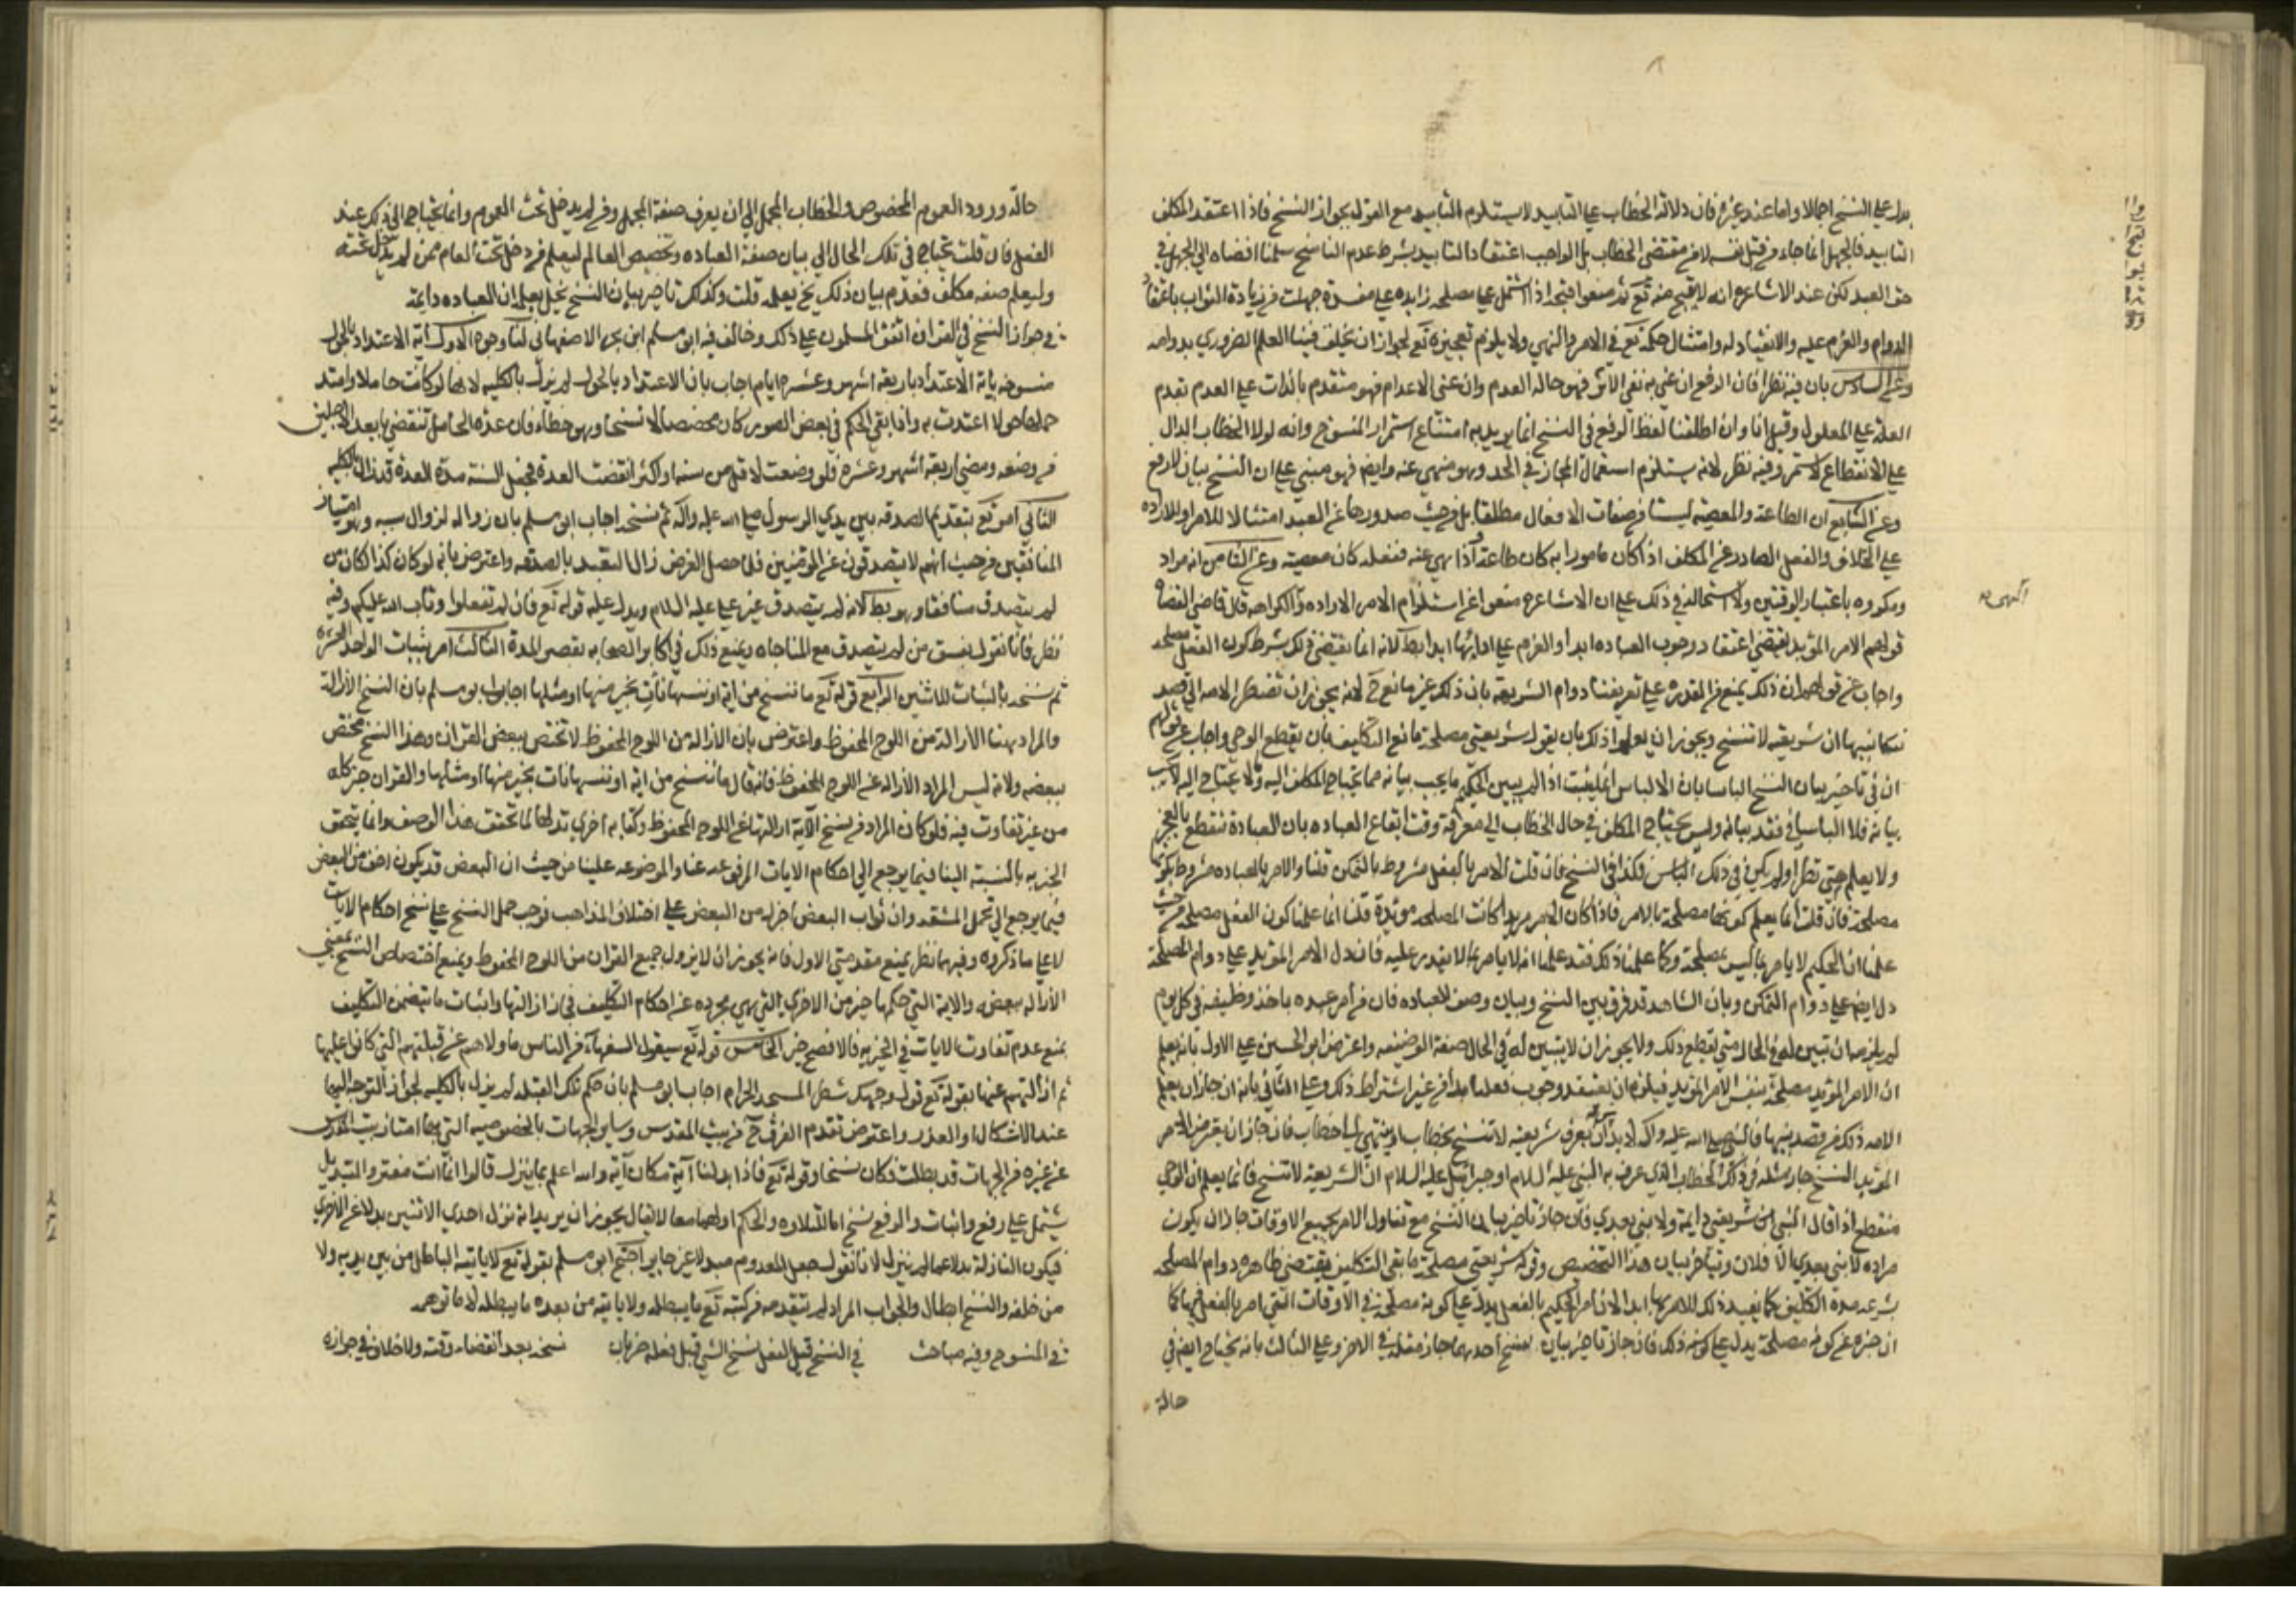 يدل على النسخ اجمالا واما عند غيره فان دلالة الخطاب على التابيد لا يستلزم التابيد مع القول بجواز النسخ فاذا اعتقد المكلف
التابيد فالجهل انما جاء من قبل نفسه لا من مقتضى الخطاب بل الواجب اعتقاد التابيد بشرط عدم الناسخ سلمنا افضاه الى الجهل في
حق العبد لكن عند الاشاعره انه لا يقبح منه تع شي منعوا قبحه اذا اشتمل على مصلحه زايده على مفسدة جهله من زيادة الثواب باعتقاد
الدوام والعزم عليه والانقياد له وامتثال حكمه تع في الامر والنهي ولا يلزم تعجيزه تع لجواز ان يخلف فينا العلم الضروري بدوامه
وعن السادس بان فيه نظرا فان الرفع ان عنى به نفى الاثر فهو حاله العدم وان عنى الاعدام فهو متقدم بالذات على العدم تقدم
العلة على المعلول وقيل انا وان اطلقنا لفظ الرفع في النسخ انما يريد به امتناع استمرار المنسوخ وانه لولا الخطاب الدال
على الانقطاع لاستمر وفيه نظر لانه يستلزم استعمال المجاز في الحد وهو منهي عنه وايض فهو مبني على ان النسخ بيان لا رفع
وعن السابع ان الطاعة والمعصية ليستا من صفات الافعال مطلقا بل من حيث صدورها عن العبد امتثالا للامر او للارادة
على الخلاف والفعل الصادر عن المكلف اذا كان مامورا به كان طاعة واذا نهى عنه ففعله كان معصية وعن الثامن انه مراد
ومكروه باعتبار الوقتين ولا استحالة في ذلك على ان الاشاعره منعوا من استلزام الامر الاراده والكراهه قال قاضي القضاة
النهي
قولهم الامر المؤبد يقتضي اعتقاد وجوب العباده ابدا والعزم على ادائها ابدا بط لانه انما يقتضي ذلك بشرط كون الفعل مصلحه
واجاب عن قولهم ان ذلك يمنع من القدره على تعريفنا دوام الشريعة بان ذلك غير مانع ح لانه يجوز ان تضطر الامه الى قصد
نبيها ان شريعته لا تنسخ ويجوز ان يعلموا ذلك بان يقول شريعتي مصلحة ما بقي التكليف فان بقطع الوحي واجاب عن قولهم
ان في تاخير بيان النسخ الباسا بان الالباس انما يثبت اذا لم يبين الحكيم ما يجب بيانه مما يحتاج المكلف اليه ولا يحتاج اليه لا يجب
بيانه فلا الباس في فقد بيانه وليس يحتاج المكلف في حال الخطاب الى معرفة وقت ايقاع العباده بان العبادة تنقطع بالعجز
ولا يعلم متى تطرا ولم يكن في ذلك الباس فكذا في النسخ فان قلت الامر بالفعل مشروط بالتمكن قلنا والامر بالعباده مشروط بكون
مصلحة فان قلت انما يعلم كونها مصلحة بالامر فاذا كان الامر مؤبدا كانت المصلحه مؤبدة قلنا انما علمنا كون الفعل مصلحه من حيث
علمنا ان الحكيم لا يامر بما ليس بمصلحة وكما علمنا ذلك فقد علمنا انه لا يامر بما لا يقدر عليه فان دل الامر المؤبد على دوام المصلحة
دل ايض على دوام التمكن وبان الشاهد قد فرق بين النسخ وبيان وصف العباده فان من امر عبده باخذ وظيفه في كل يوم
لم يلزمه ان يبين له في الحال متى تقطع ذلك ولا يجوز ان لا يبين له في الحال صفة الوظيفه واعترض ابو الحسين على الاول بانه يعلم
ان الامر المؤبد مصلحة بنفس الامر المؤبد فيلزم ان يعتقد وجوب فعلنا ابدا من غير اشتراط ذلك وعلى الثاني بانه ان جاز ان يعلم
الامه ذلك من قصد نبيها فالنبي صلى الله عليه واله لا بد ان يعرف شريعته لا تنسخ بخطاب او ينتهي الى خطاب فان جاز ان يقرن للامر
المؤبد النسخ جاز مثله في ذلك الخطاب الذي عرف به النبي عليه السلام او جبرائيل عليه السلام ان الشريعة لا تنسخ فانما يعلم ان الوحي
منقطع اذا قال النبي ان شريعتي دايمة ولا نبي بعدي فان جاز تاخير بيان النسخ مع تناول الامر لجميع الاوقات جاز ان يكون
مراده لا نبي بعدي الا فلان وتياخر بيان هذا التخصيص وقوله شريعتي مصلحة ما بقي التكليف يقتضي ظاهره دوام المصلحه
بشرعه مدة التكليف كما يفيد ذلك للامر بها ابدا لان امر الحكيم بالفعل يدل على كونه مصلحة في الاوقات التي امر بالفعل فيها كما
ان خبره عن كونه مصلحة يدل على كونه ذلك فان جاز تاخير بيان نسخ احدهما جاز مثله في الاخر وعلى الثالث بانه يحتاج ايض في
حالة
حالة ورود العموم المخصوص والخطاب المجمل الى ان يعرف صفة المجمل ومن لم يدخل تحت العموم وانما يحتاج الى ذلك عند
الفعل فان قلت يحتاج في تلك الحال الى بيان صفة العباده وتخصيص العالم ليعلم من دخل تحت العام ممن لم يدخل تحته
وليعلم صفه مكلف فعدم بيان ذلك يخل بعلمه قلت وكذلك تاخير بيان النسخ يخل بعلم ان العباده دايمة
في جواز النسخ في القران اتفق المسلمون على ذلك وخالف فيه ابو مسلم ابن بحر الاصفهاني لنا وجوه الاول اية الاعتداد بالحول
منسوخه باية الاعتداد باربعة اشهر وعشرة ايام اجاب بان الاعتداد بالحول لم يزل بالكليه لانها لو كانت حاملا وامتد
حملها حولا اعتدت به واذا بقي الحكم في بعض الصور كان مخصصا لا نسخا وهو خطا فان عدة الحامل تنقضي بابعد الاجلين
من وضعه ومضي اربعة اشهر وعشرة فلو وضعت لاقل من سنة او اكثر انقضت العدة فجعل السنة مدة العدة قد زال بالكليه
الثاني امر تع بتقديم الصدقه بين يدي الرسول صلى الله عليه واله ثم نسخه اجاب ابو مسلم بان زواله لزوال سببه وهو امتياز
المنافقين من حيث انهم لا يتصدقون عن المؤمنين فلما حصل الغرض زال التعبد بالصدقه واعترض بانه لو كان كذا لكان من
لم يتصدق منافقا وهو بط لانه لم يتصدق غير علي عليه السلام ويدل عليه قوله تع فان لم تفعلوا وتاب الله عليكم وفيه
نظر فانا نقول بفسق من لم يتصدق مع المناجاه ويمنع ذلك في اكابر الصحابه بقصر المدة الثالث امر بثبات الواحد للعشرة
ثم نسخه بالثبات للاثنين الرابع قوله تع ما ننسخ من اية او ننسها نات بخير منها او مثلها اجاب ابو مسلم بان النسخ الازالة
والمراد بهنا الازالة من اللوح المحفوظ واعترض بان الازاله من اللوح المحفوظ لا تختص ببعض القران وهذا النسخ مختص
ببعضه ولانه ليس المراد الازاله عن اللوح المحفوظ فانه قال ما ننسخ من اية او ننسها نات بخير منها او مثلها والقران خير كله
من غير تفاوت فيه فلو كان المراد من نسخ الاية ازالتها عن اللوح المحفوظ وكتابه اخرى بدلها لما تحقق هذا الوصف وانما يتحقق
الخيريه بالنسبة الينا فيما يرجع الى احكام الايات المرفوعه عنا والموضوعه علينا من حيث ان البعض قد يكون اخف من البعض
فيما يرجع الى تحمل المشقه وان ثواب البعض اجزل من البعض على اختلاف المذاهب فوجب حمل النسخ على نسخ احكام الايات
لا على ما ذكروه وفيهما نظر بمنع مقدمتي الاول فانه يجوز ان لا يزول جميع القران من اللوح المحفوظ ويمنع اختصاص النسخ بمعنى
الازاله ببعضه والاية التي حكمها خير من الاخرى التي هي مجرده عن احكام التكليف في ازالتها واثبات ما يتضمن التكليف
بمنع عدم تفاوت الايات في الخيريه فالافصح خير الخامس قوله تع سيقول السفهاء من الناس ما ولاهم عن قبلتهم التي كانوا عليها
ثم ازالتهم عنها بقوله تع فول وجهك شطر المسجد الحرام اجاب ابو مسلم بان حكم تلك القبله لم يزل بالكليه لجواز التوجه اليها
عند الاشكال او العذر واعترض بعدم الفرق ح من بيت المقدس وساير الجهات بالخصوصيه التي بها امتاز بيت المقدس
عن غيره من الجهات قد بطلت فكان نسخا وقوله تع فاذا بدلنا اية مكان اية والله اعلم بما ينزل قالوا انما انت مفتر والتبديل
يشتمل على رفع واثبات والرفع نسخ اما التلاوه والحكم او لهما معا لا يقال يجوز ان يريد انه نزل احدى الاثنين بدلا عن الاخرى
فيكون النازلة بدلا عما لم ينزل لانا نقول جعل المعدوم مبدلا غير جايز احتج ابو مسلم بقوله تع لا ياتيه الباطل من بين يديه ولا
من خلفه والنسخ ابطال والجواب المراد لم يتقدمه من كتبه تع ما يبطله ولا ياتيه من بعده ما يبطله لا ما توهمه
في المنسوخ وفيه مباحث في النسخ قبل الفعل نسخ الشي قبل فعله ضربان نسخه بعد انقضاء وقته ولا خلاف في جوازه